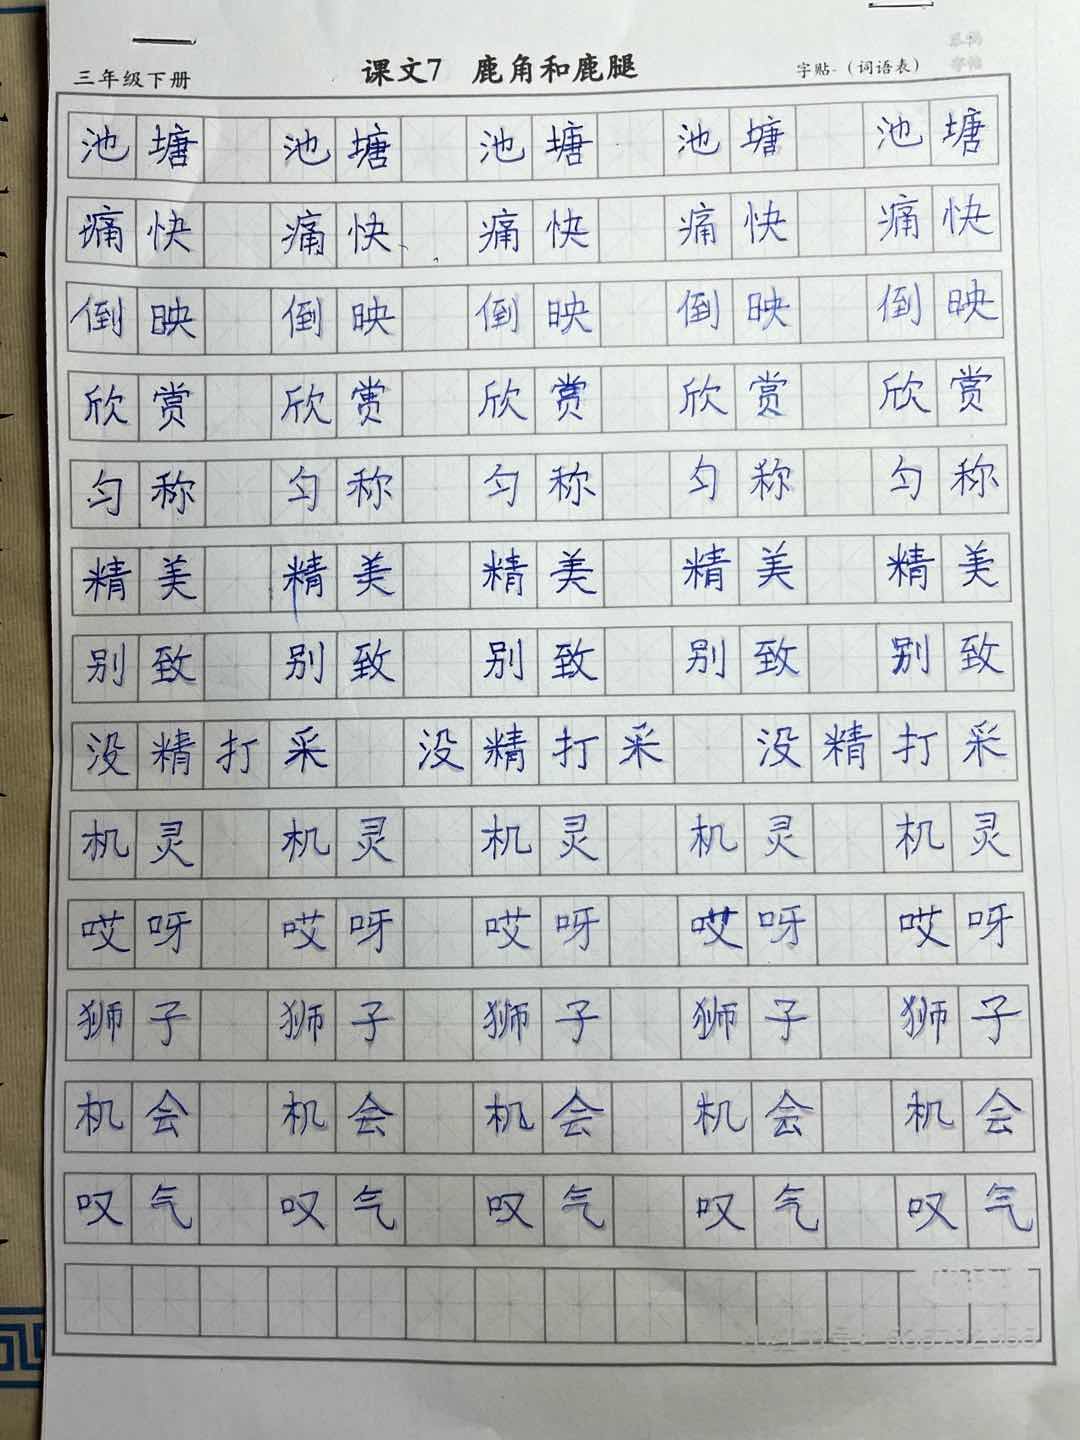 三年级下册 课文7 鹿角和鹿腿 字贴-（词语表）
池塘 池塘 池塘 池塘 池塘
痛快 痛快 痛快 痛快 痛快
倒映 倒映 倒映 倒映 倒映
欣赏 欣赏 欣赏 欣赏 欣赏
匀称 匀称 匀称 匀称 匀称
精美 精美 精美 精美 精美
别致 别致 别致 别致 别致
没精打采 没精打采 没精打采
机灵 机灵 机灵 机灵 机灵
哎呀 哎呀 哎呀 哎呀 哎呀
狮子 狮子 狮子 狮子 狮子
机会 机会 机会 机会 机会
叹气 叹气 叹气 叹气 叹气